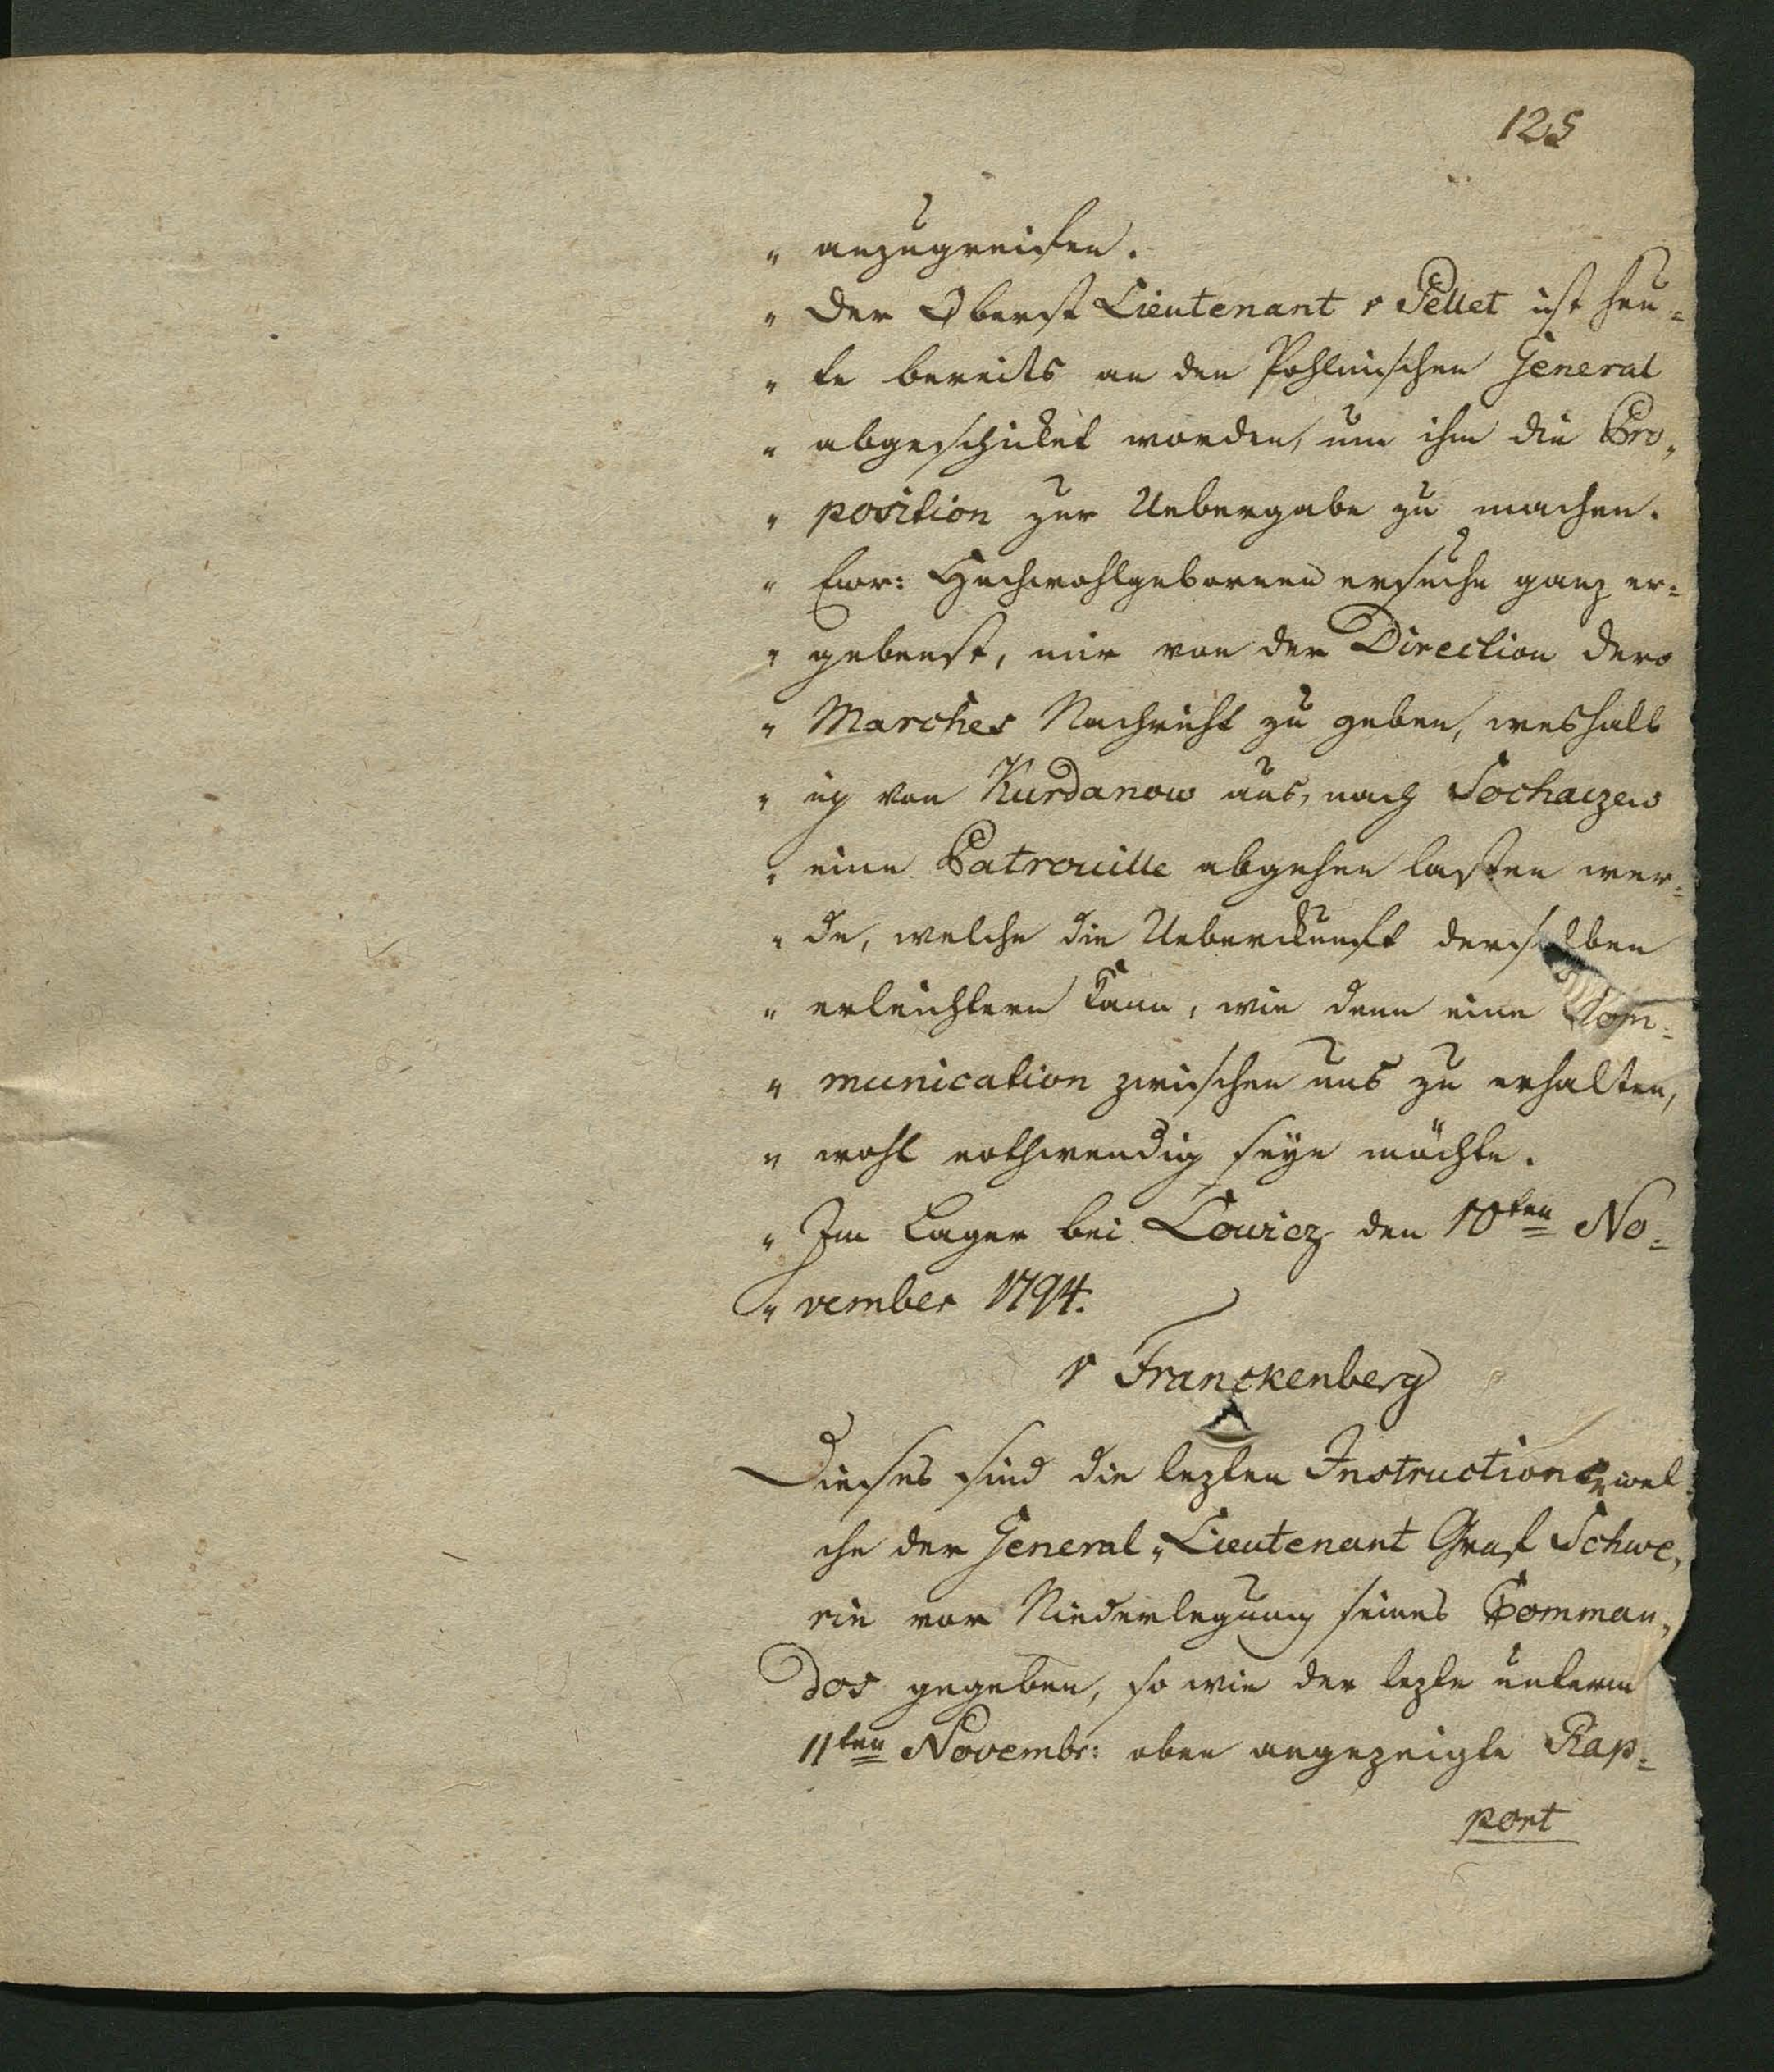 125
" anzugreifen.
" Der Oberst Lieutenant v Pellet ist heu=
" te bereits an den Pohlnischen General
" abgeschickt worden, um ihm die Pro„
" position zur Uebergabe zu machen.
" Ewr: Hochwohlgebornen ersuche ganz er=
" gebenst, mir von der Direction dero
" Marches Nachricht zu geben, weshalb
" ich von Kurdanow aus, nach Sochaczew
" eine Patrouille abgehen lassen wer=
" de, welche die Ueberkunft derselben
" erleichtern kann, wie denn eine Com=
" munication zwischen uns zu erhalten,
" wohl nothwendig seyn möchte.
" Im Lager bei Lowicz den 10ten No=
" vember 1794.
v Franckenberg
Dieses sind die lezten Instructionen wel
che der General„Lieutenant Graf Schwe„
rin vor Niederlegung seines Comman„
dos gegeben, so wie der lezte unterm
11ten Novembr: oben angezeigte Rap=
port